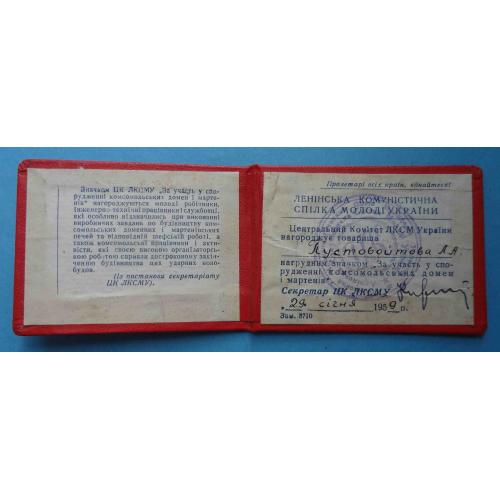 Значком ЦК ЛКСМУ „За участь у спо-
рудженні комсомольських домен і марте-
нів" нагороджуються молоді робітники,
інженерно-технічні працівники і службовці,
які особливо відзначились при виконанні
виробничих завдань по будівництву ком-
сомольських доменних і мартенівських
печей та відповідній шефській роботі, а
також комсомольські працівники і акти-
вісти, які своєю високою організаторсь-
кою роботою сприяли достроковому закін-
ченню будівництва цих ударних ново-
будов.
(Із постанови секретаріату
ЦК ЛКСМУ).
Пролетарі всіх країн, єднайтеся!
ЛЕНІНСЬКА КОМУНІСТИЧНА
СПІЛКА МОЛОДІ УКРАЇНИ
Центральний Комітет ЛКСМ України
нагороджує товариша
Пустовойтова Л.А.
нагрудним значком „За участь у спо-
рудженні комсомольських домен
і мартенів"
Секретар ЦК ЛКСМУ
„29" січня 1959 р.
Зам. 8710